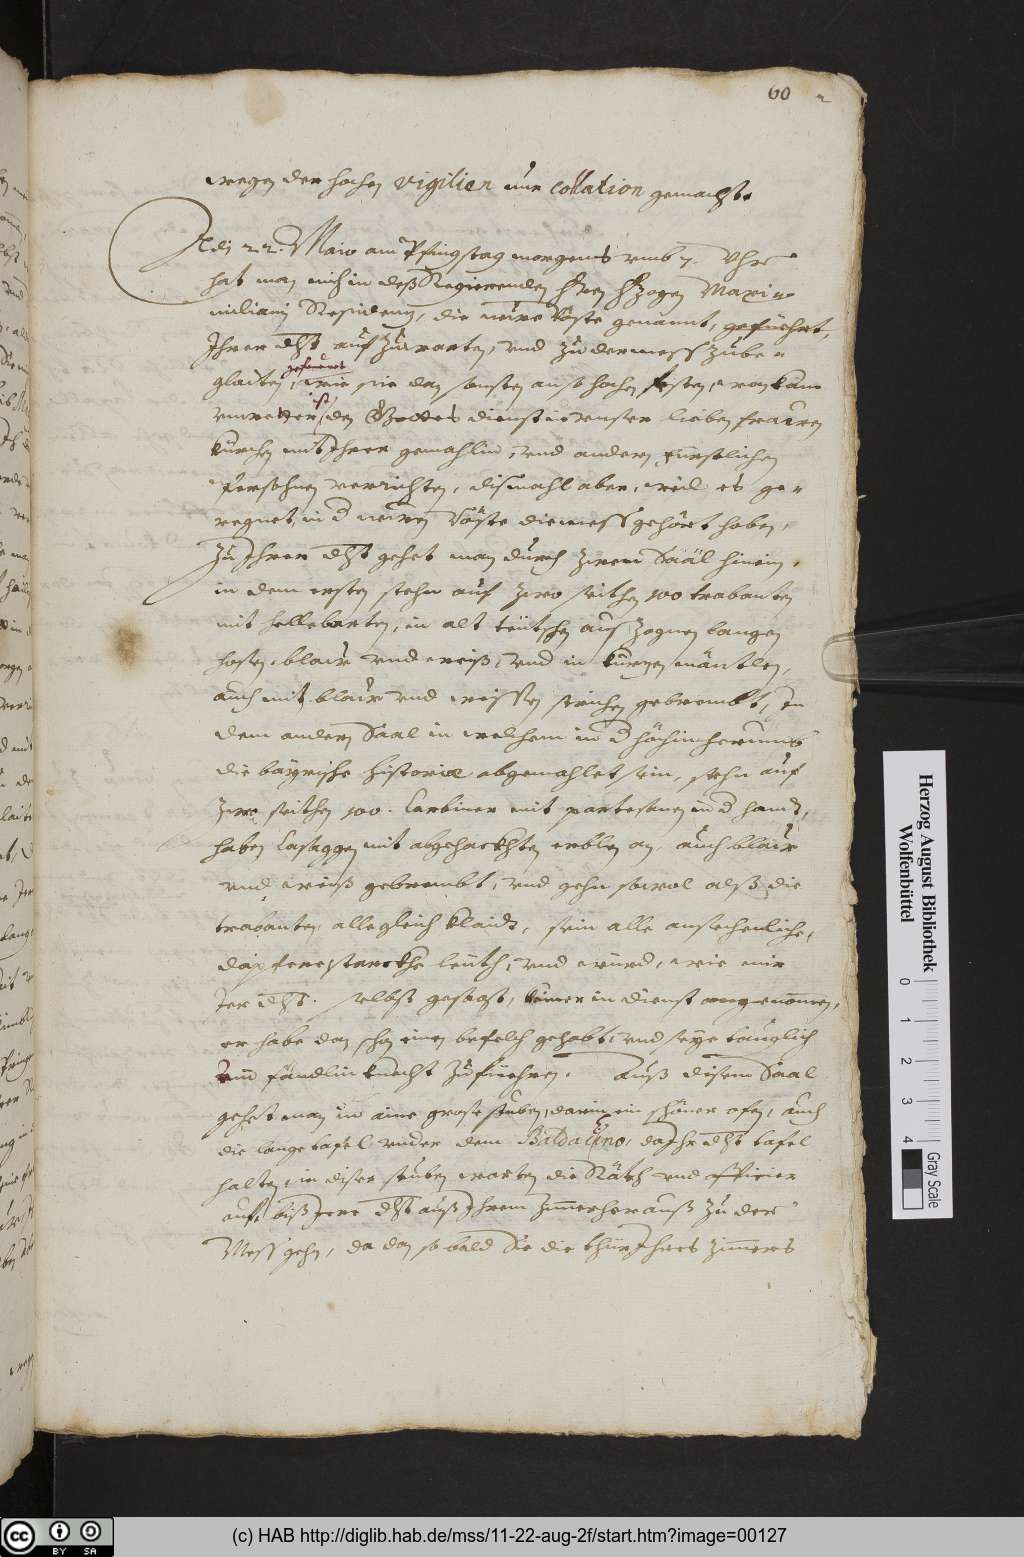 60
wegen der hochen vigilien nur collation gemacht.
Adi 22. Maio am Pfingstag morgens vmb 7. Vhr
hat man mich in deß Regierenden Hern Hzogen Maxi=
miliani Residenz, die neue Vöste genannt, gefüehrt,
Ihrer dht aufzuwarten, vnd zu der mess zube=
glaiten, wie sie dan sonsten an so hochen festen, von kam
gefüert
ist
den Gottes dienst in vnser lieben frauen
kürchen mit Ihrer gemahlin, vnd andern fürstlichen
Persohnen verrichten, dismahl aber, weil es ge=
regnet, in d neuen Vöste die mess gehört haben,
Zu Ihrer dht gehet man durch zween Sääl hinein,
in dem ersten stehn auf zwo seithen 100 trabanten
mit hellebarten, in alt teütschen auszognen langen
hosen, blaw vnd weiß, vnd in kurzen mäntlen,
auch mit blaw vnd weissen strichen gebrembt, In
dem andern Saal in welchem in d höchin herumb
die bayrische historiae abgemahlet sein, stehn auf
zwo seithen 100. Carbiner mit partesanen in d handt,
haben Casaggen mit abgehackhten erblen an, auch blaw
vnd weiß gebrembt, vnd gehn sowol alß die
trabanten, alle gleich klaidt, sein alle ansechenliche,
dapfere starckhe leüth, vnd würd, wie mir
Ier dht. selbst gesagt, kainer in dienst angenommen,
er habe dan schon einen befelch gehabt, vnd seye tauglich
ein fändlin knecht zufüehren. Auß disem Saal
gehet man in aine grosse stuben, darin ein schöner ofen, auch
die lange tafel vnder dem Baldachino, da Ihr dht tafel
halten, in diser stuben warten die Räth vnd officier
auf, biß Irer dht auß Ihrem zimmer herauß zu der
Mess gehn, da dan so bald Sie die thür Ihres zimmers
Herzog August Bibliothek
Wolfenbüttel
0 1 2 3 4
Gray Scale
cc BY SA
(c) HAB http://diglib.hab.de/mss/11-22-aug-2f/start.htm?image=00127